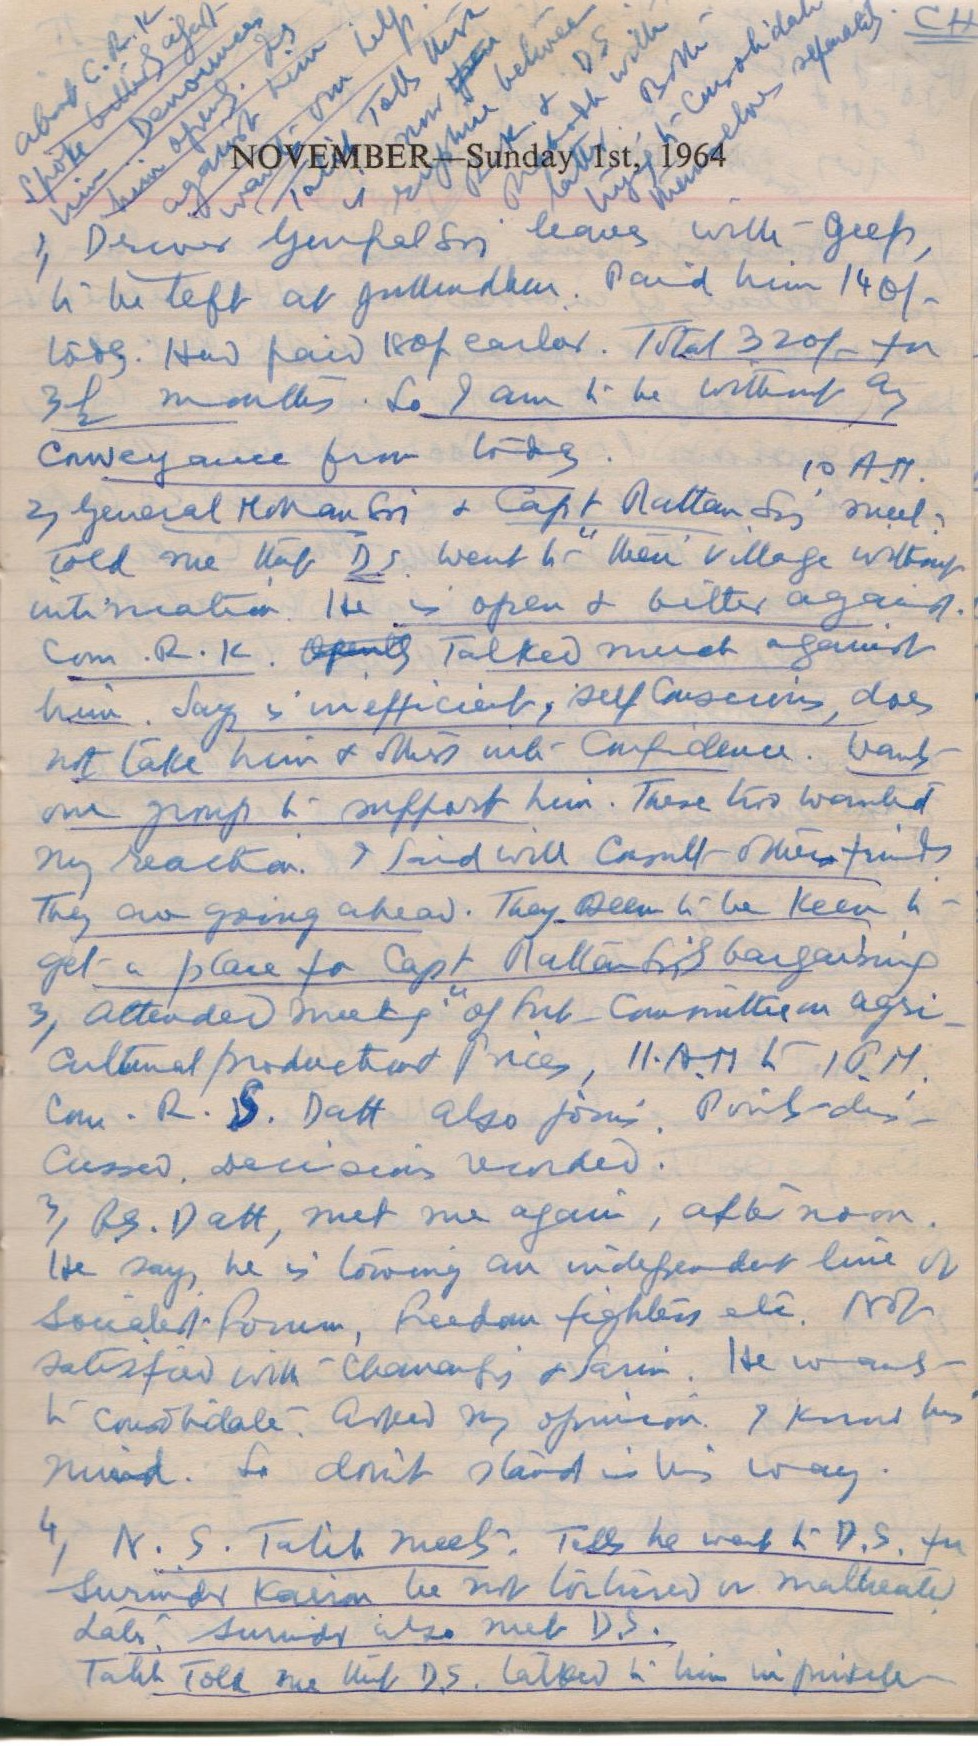 NOVEMBER—Sunday 1st, 1964
1, Driver leaves with Jeep,
to be left at Paid him 140/-
today. Had paid 180/- earlier. Total 320/- for
3½ months. So I am to be without any
Conveyance from today.
10 A.M.
2, General Mohan & Capt Rattan meet.
Told me that D.S. went to their village without
intimation. He is open & bitter against
Com. R. K. Openly Talked much against
him. Says is inefficient, self Conscious, does
not take him & others into Confidence. Wants
our group to support him. These two wanted
my reaction. I said will Consult other friends
They are going ahead. They seem to be keen to
get a place for Capt Rattan bargaining
3, Attended meeting of Sub-Committee on agri-
cultural production & Prices, 11. A.M to 1 P.M.
Com. R. S. Datt also joins. Points dis-
cussed. Decisions recorded.
3, R.S. Datt, met me again, afternoon.
He says he is towing an independent line of
Socialist Forum, Freedom fighters etc. Not
satisfied with & He wants
to Consolidate. Asked my opinion. I know his
mind. So don't stand in his way.
4, N. S. Talib meets. Tells he went to D.S. for
Surinder Kairon be not tortured or maltreated
Later Surinder also met D.S.
Talib Told me that D.S. talked to him in private
about C. R. K
Spoke bitterly agst
him Denounces
him openly.
against him
wants our help.
Talib Tells there
is now open
rupture between
R. K. & D.S
with
latter. Both
try to Consolidate
themselves separately.